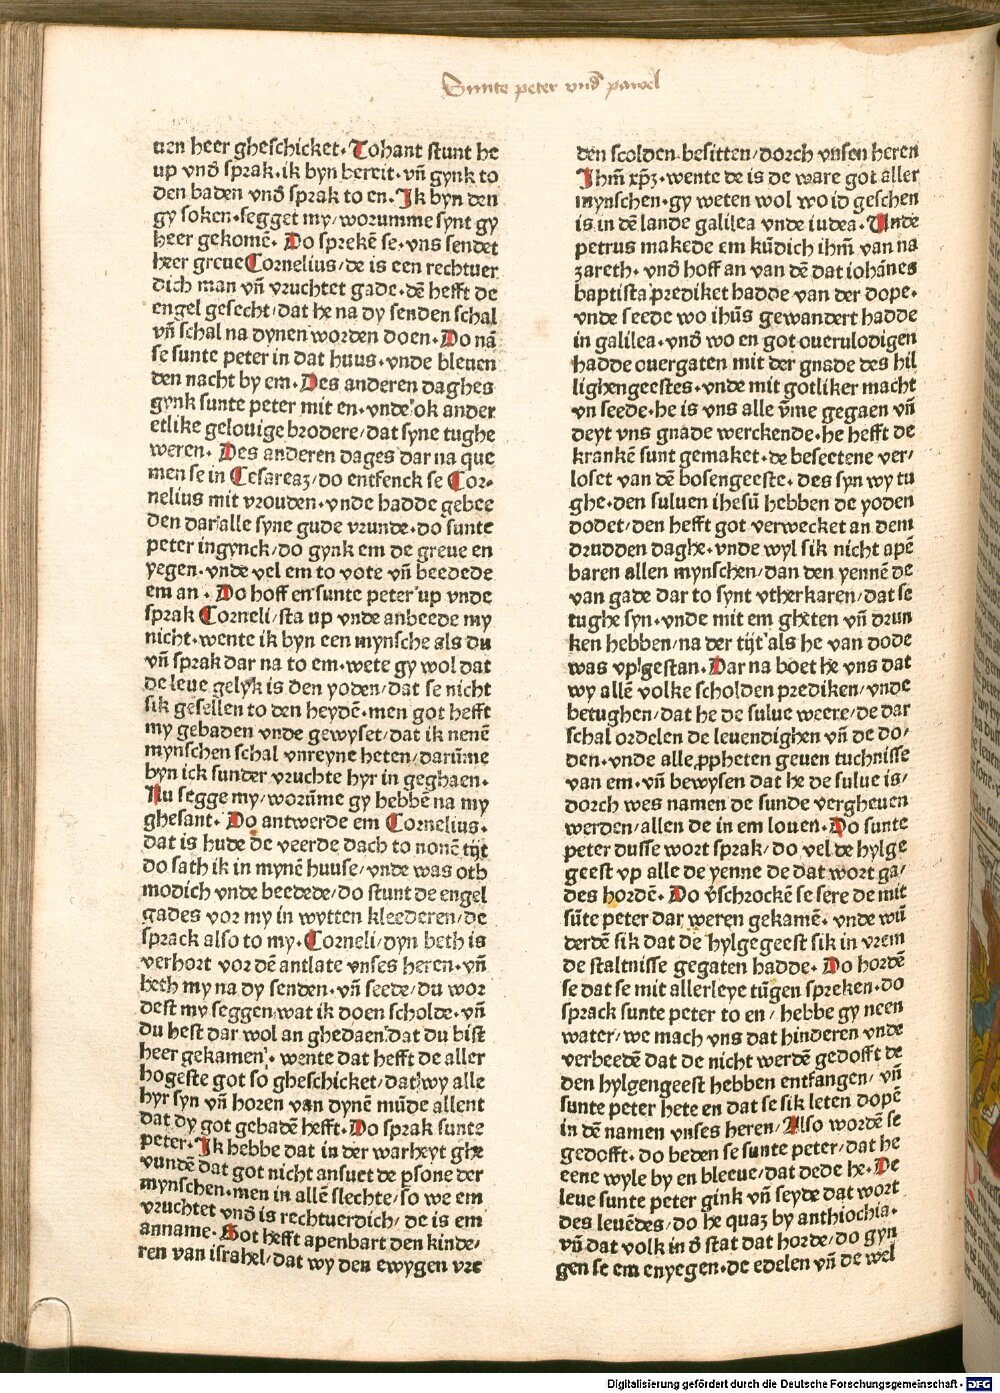 Sunte peter vnd pawel
uen heer gheschicket. Tohant stunt he
up vnd sprak. ik byn bereit. vn̄ gynk to
den baden vnd sprak to en. Ik byn den
gy soken. segget my/ worumme synt gy
heer gekomē. Do sprekē se. vns sendet
heer greue Cornelius/ de is een rechtuer
dich man vn̄ vruchtet gade. dē hefft de
engel gesecht/ dat he na dy senden schal
vn̄ schal na dynen worden doen. Do nā
se sunte peter in dat huus. vnde bleuen
den nacht by em. Des anderen daghes
gynk sunte peter mit en. vnde ok ander
etlike gelouige brodere/ dat syne tughe
weren. Des anderen dages dar na que
men se in Cesareaʒ/ do entfenck se Cor-
nelius mit vrouden. vnde hadde gebee
den dar alle syne gude vrunde. do sunte
peter ingynck/ do gynk em de greue en
yegen. vnde vel em to vote vn̄ beedede
em an. Do hoff en sunte peter up vnde
sprak Corneli/ sta up vnde anbeede my
nicht. wente ik byn een mynsche als du
vn̄ sprak dar na to em. wete gy wol dat
de leue gelyk is den yoden/ dat se nicht
sik gesellen to den heydē. men got hefft
my gebaden vnde gewyset/ dat ik nenē
mynschen schal vnreyne heten/ darūme
byn ick sunder vruchte hyr in geghaen.
Nu segge my/ worūme gy hebbē na my
ghesant. Do antwerde em Cornelius.
dat is hude de veerde dach to nonē tijt
do sath ik in mynē huuse/ vnde was oth
modich vnde beedede/ do stunt de engel
gades vor my in wytten kleederen/ de
sprack also to my. Corneli/ dyn beth is
verhort vor dē antlate vnses heren. vn̄
heth my na dy senden. vn̄ seede/ du wor
dest my seggen wat ik doen scholde. vn̄
du hest dar wol an ghedaen dat du bist
heer gekamen. wente dat hefft de aller
hogeste got so gheschicket/ dat wy alle
hyr syn vn̄ horen van dynē mūde allent
dat dy got gebadē hefft. Do sprak sunte
peter. Ik hebbe dat in der warheyt ghe
vundē dat got nicht ansuet de ꝑsone der
mynschen. men in allē slechte/ so we em
vruchtet vnd is rechtuerdich/ de is em
anname. Got hefft apenbart den kinde/
ren van israhel/ dat wy den ewygen vre
den scolden besitten/ dorch vnsen heren
Ihm̄ xp̄ʒ. wente de is de ware got aller
mynschen. gy weten wol wo id geschen
is in dē lande galilea vnde iudea. Unde
petrus makede em kūdich ihm̄ van na
zareth. vnd hoff an van dē dat iohānes
baptista prediket hadde van der dope.
vnde seede wo ihūs gewandert hadde
in galilea. vnd wo en got ouerulodigen
hadde ouergaten mit der gnade des hil
lighengeestes. vnde mit gotliker macht
vn seede. he is vns alle v̄me gegaen vn̄
deyt vns gnade werckende. he hefft de
krankē sunt gemaket. de beseetene ver/
loset van dē bosengeeste. des syn wy tu
ghe. den suluen ihesū hebben de yoden
dodet/ den hefft got verwecket an dem
drudden daghe. vnde wyl sik nicht apē
baren allen mynschen/ dan den yennē de
van gade dar to synt vtherkaren/ dat se
tughe syn. vnde mit em ghēten vn̄ drun
ken hebben/ na der tijt als he van dode
was vp gestan. Dar na boet he vns dat
wy allē volke scholden prediken/ vnde
betughen/ dat he de sulue weere/ de dar
schal ordelen de leuendighen vn̄ de do/
den. vnde alle ꝓpheten geuen tuchnisse
van em. vn̄ bewysen dat he de sulue is/
dorch wes namen de sunde vergheuen
werden/ allen de in em louen. Do sunte
peter dusse wort sprak/ do vel de hylge
geest vp alle de yenne de dat wort ga/
des hordē. Do v̄schrockē se sere de mit
sūte peter dar weren gekamē. vnde wū
derdē sik dat de hylgegeest sik in vrem
de staltnisse gegaten hadde. Do hordē
se dat se mit allerleye tūgen spreken. do
sprack sunte peter to en/ hebbe gy neen
water/ we mach vns dat hinderen vnde
verbeedē dat de nicht werdē gedofft de
den hylgengeest hebben entfangen/ vn̄
sunte peter hete en dat se sik leten dopē
in dē namen vnses heren/ Also wordē se
gedofft. do beden se sunte peter/ dat he
eene wyle by en bleeue/ dat dede he. De
leue sunte peter gink vn̄ seyde dat wort
des leuēdes/ do he quaʒ by anthiochia.
vn̄ dat volk in d̄ stat dat horde/ do gyn
gen se em enyegen. de edelen vn̄ de wel
Digitalisierung gefördert durch die Deutsche Forschungsgemeinschaft - DFG